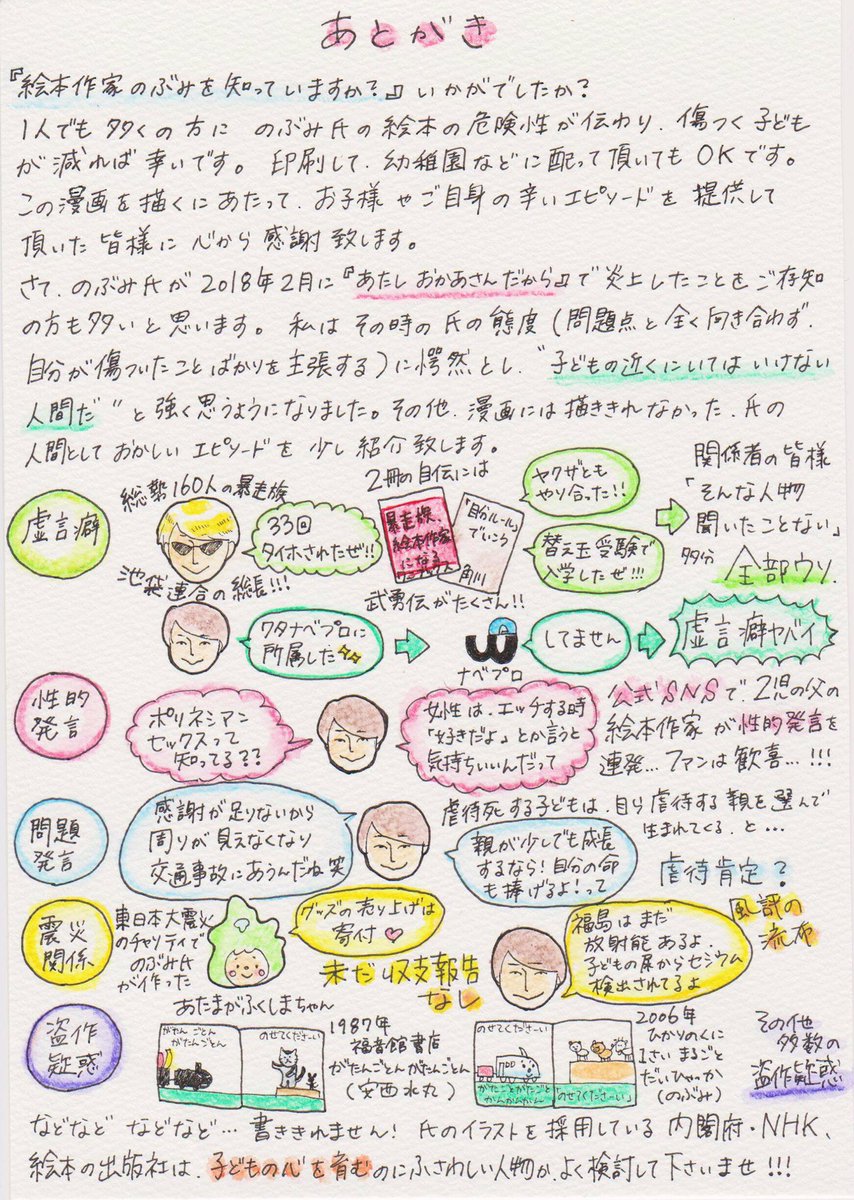 あとがき
『絵本作家のぶみを知っていますか？』いかがでしたか？
1人でも多くの方に のぶみ氏の絵本の危険性が伝わり、傷つく子ども
が減れば幸いです。印刷して、幼稚園などに配って頂いてもOKです。
この漫画を描くにあたって、お子様やご自身の辛いエピソードを提供して
頂いた皆様に心から感謝致します。
さて、のぶみ氏が2018年2月に『あたしおかあさんだから』で炎上したことをご存知
の方も多いと思います。私はその時の氏の態度（問題点と全く向き合わず、
自分が傷ついたことばかりを主張する）に愕然とし、〝子どもの近くにいてはいけない
人間だ〟と強く思うようになりました。その他、漫画には描ききれなかった、氏の
人間としておかしいエピソードを少し紹介致します。
虚言癖
総勢160人の暴走族
池袋連合の総長!!!
33回
タイホされたぜ!!
2冊の自伝には
暴走族、
絵本作家
になる
「自分ルール」
でいこう
角川
武勇伝がたくさん!!
ヤクザとも
やり合った!!
替え玉受験で
入学したぜ!!!
関係者の皆様
「そんな人物
聞いたことない」
多分
全部ウソ.
ワタナベプロに
所属した
ナベプロ
してません
虚言癖ヤバイ
性的
発言
ポリネシアン
セックスって
知ってる??
女性は、エッチする時
「好きだよ」とか言うと
気持ちいいんだって
公式SNSで2児の父の
絵本作家が性的発言を
連発…ファンは歓喜…!!!
問題
発言
感謝が足りないから
周りが見えなくなり
交通事故にあうんだね笑
虐待死する子どもは、自ら虐待する親を選んで
生まれてくる、と…
親が少しでも成長
するなら！自分の命
も捧げるよ！って
虐待肯定？
震災
関係
東日本大震災
のチャリティで
のぶみ氏
が作った
あたまがふくしまちゃん
グッズの売り上げは
寄付♡
未だ収支報告
なし
福島はまだ
放射能あるよ、
子どもの尿からセシウム
検出されてるよ
風評の
流布
盗作
疑惑
がたんごとん
がたんごとん
のせてくださーい
1987年
福音館書店
がたんごとんがたんごとん
（安西水丸）
のせてくださーい
がたごとがたごと
かんかんかん
「のせてくださーい」
2006年
ひかりのくに
1さいまるごと
だいひゃっか
（のぶみ）
その他
多数の
盗作疑惑
などなどなどなど…書ききれません！氏のイラストを採用している内閣府・NHK、
絵本の出版社は、子どもの心を育むのにふさわしい人物か、よく検討して下さいませ!!!